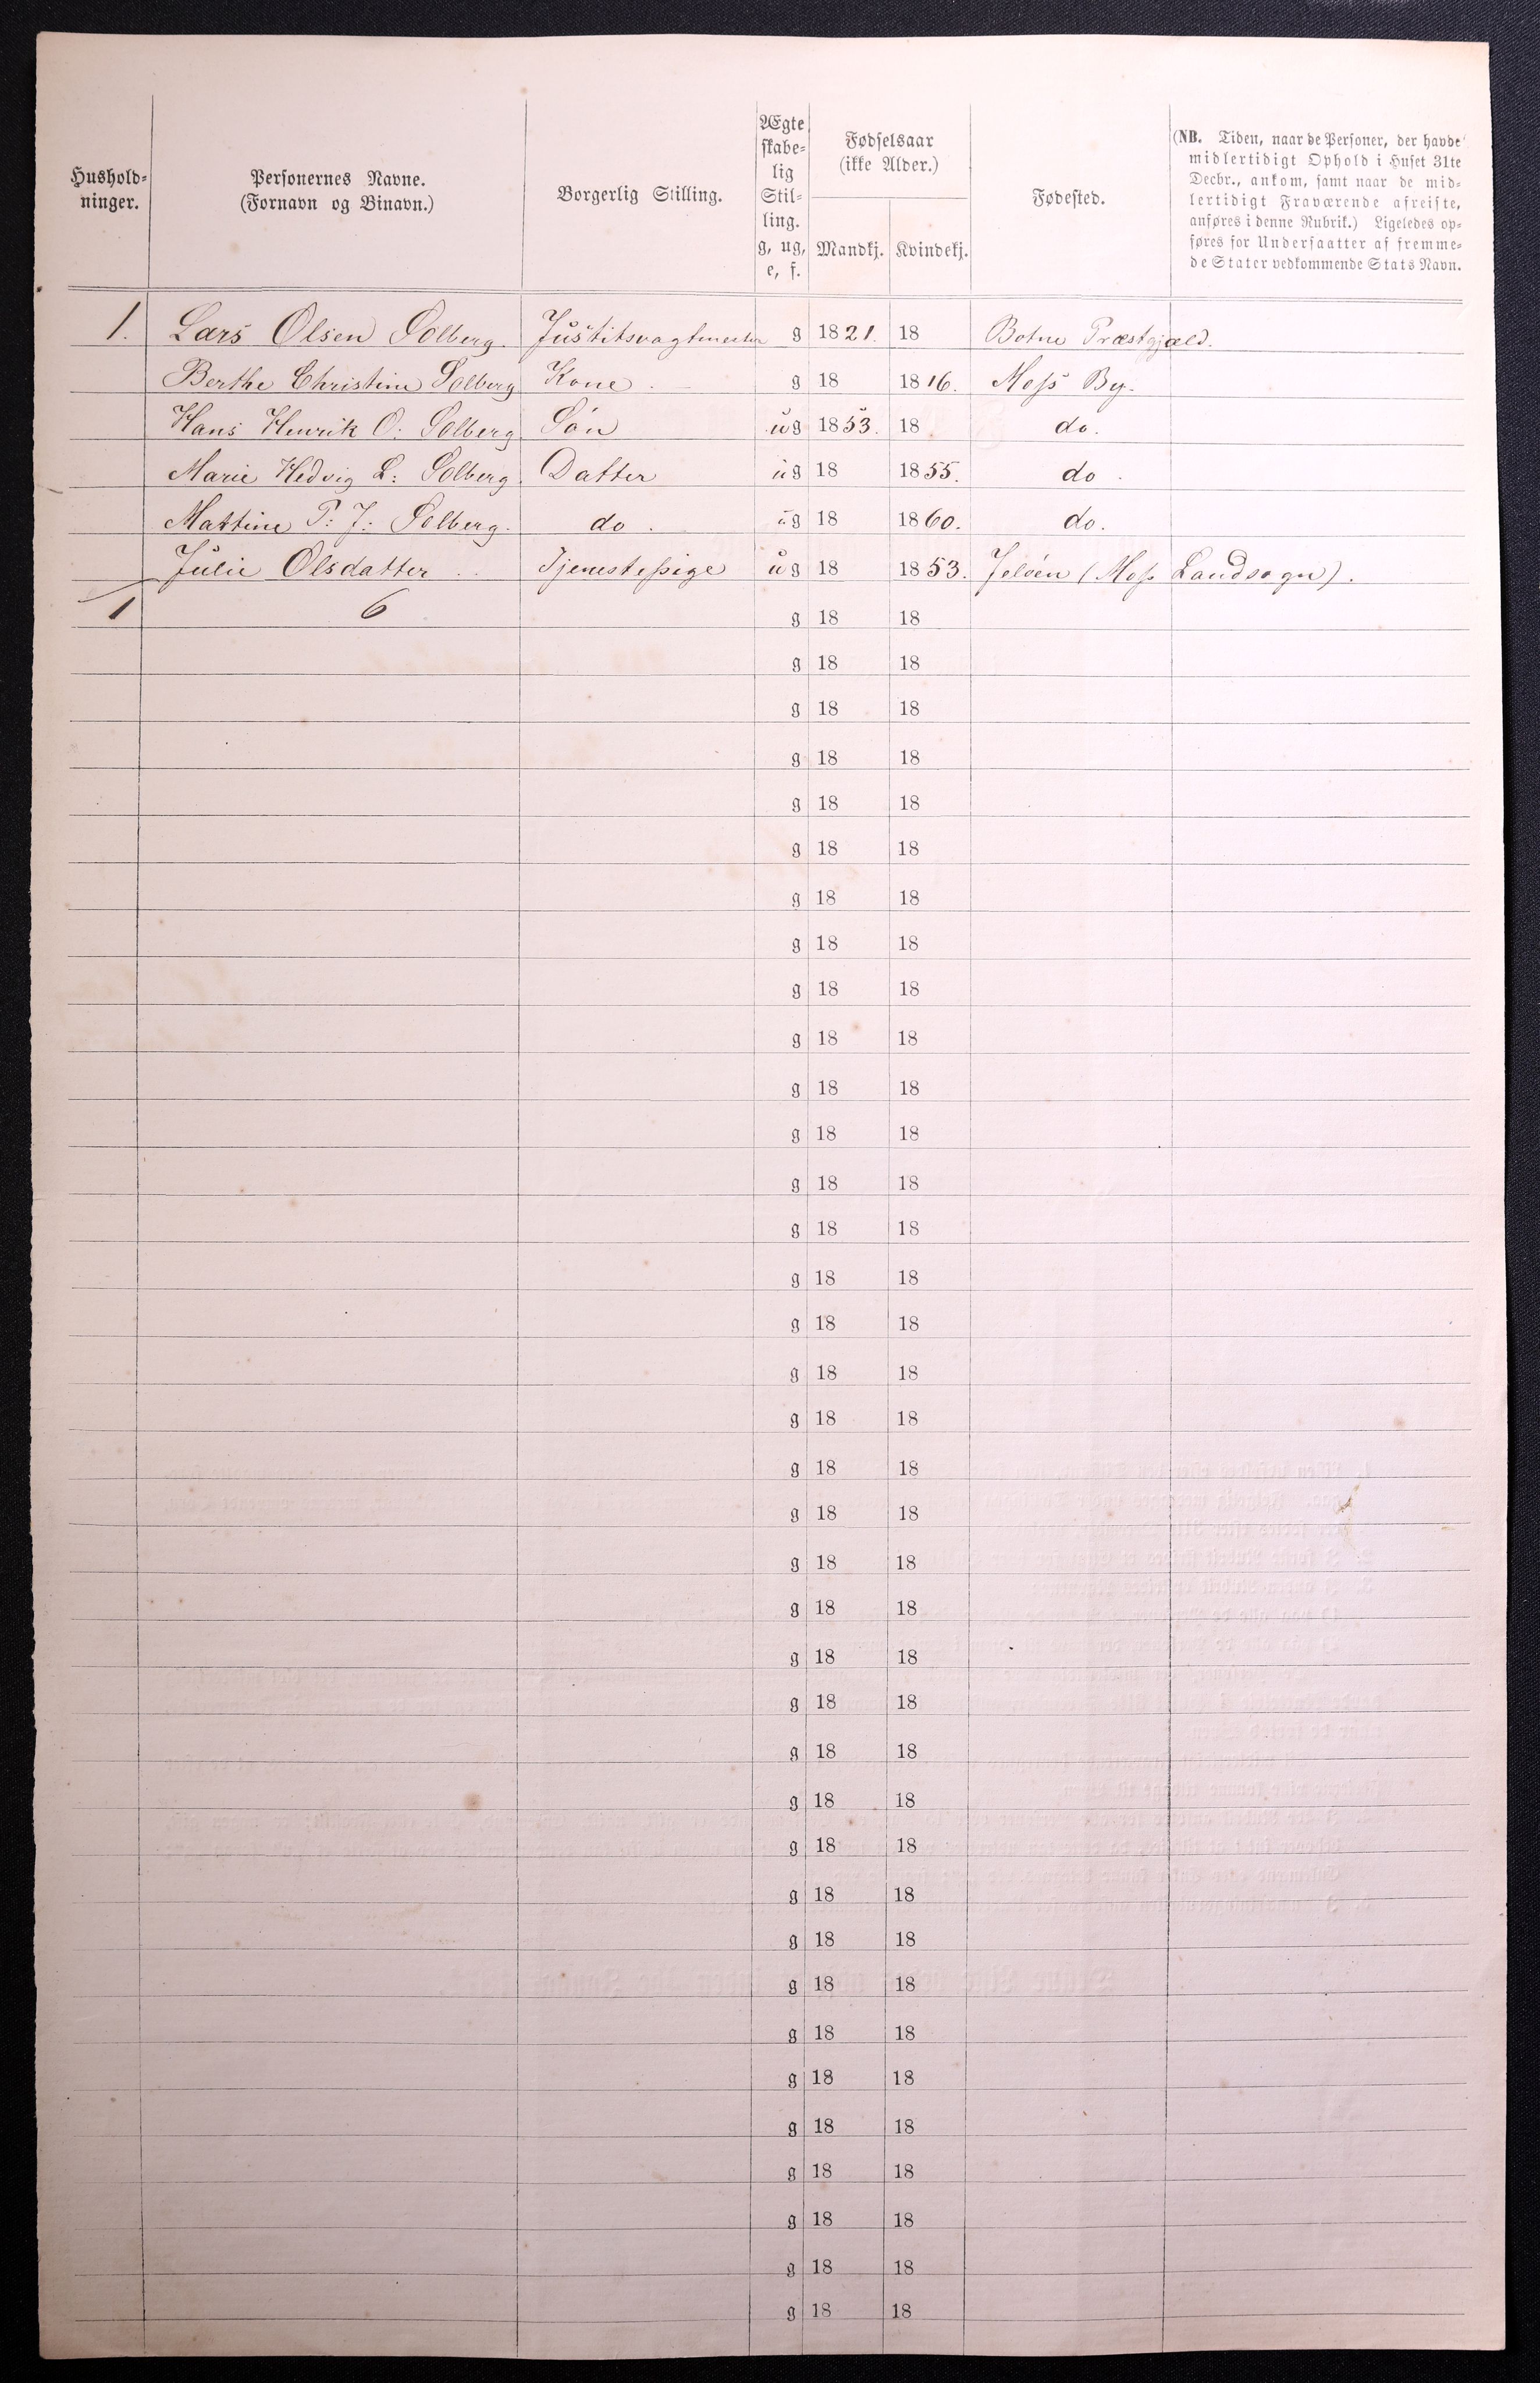 Hushold-
ninger.
Personernes Navne.
(Fornavn og Binavn.)
Borgerlig Stilling.
Ægte
skabe-
lig
Stil-
ling.
g, ug,
e, f.
Fødselsaar
(ikke Alder.)
Mandkj. Kvindekj.
Fødested.
(NB. Tiden, naar de Personer, der havde
midlertidigt Ophold i Huset 31te
Decbr., ankom, samt naar de mid-
lertidigt Fraværende afreiste,
anføres i denne Rubrik.) Ligeledes op-
føres for Undersaatter af fremme-
de Stater vedkommende Stats Navn.
1. Lars Olsen Solberg. Justitsvagtmester g 1821. 18 Botne Præstgjæld.
Berthe Christine Solberg Kone. g 18 1816. Moss By.
Hans Henrik O: Solberg Søn ug 1853. 18 do.
Marie Hedvig L: Solberg Datter ug 18 1855. do.
Mattine P: J: Solberg. do. ug 18 1860. do.
Julie Olsdatter Tjenestepige ug 18 1853. Jeløen (Moss Landsogn).
1 6 g 18 18
g 18 18
g 18 18
g 18 18
g 18 18
g 18 18
g 18 18
g 18 18
g 18 18
g 18 18
g 18 18
g 18 18
g 18 18
g 18 18
g 18 18
g 18 18
g 18 18
g 18 18
g 18 18
g 18 18
g 18 18
g 18 18
g 18 18
g 18 18
g 18 18
g 18 18
g 18 18
g 18 18
g 18 18
g 18 18
g 18 18
g 18 18
g 18 18
g 18 18
g 18 18
g 18 18
g 18 18